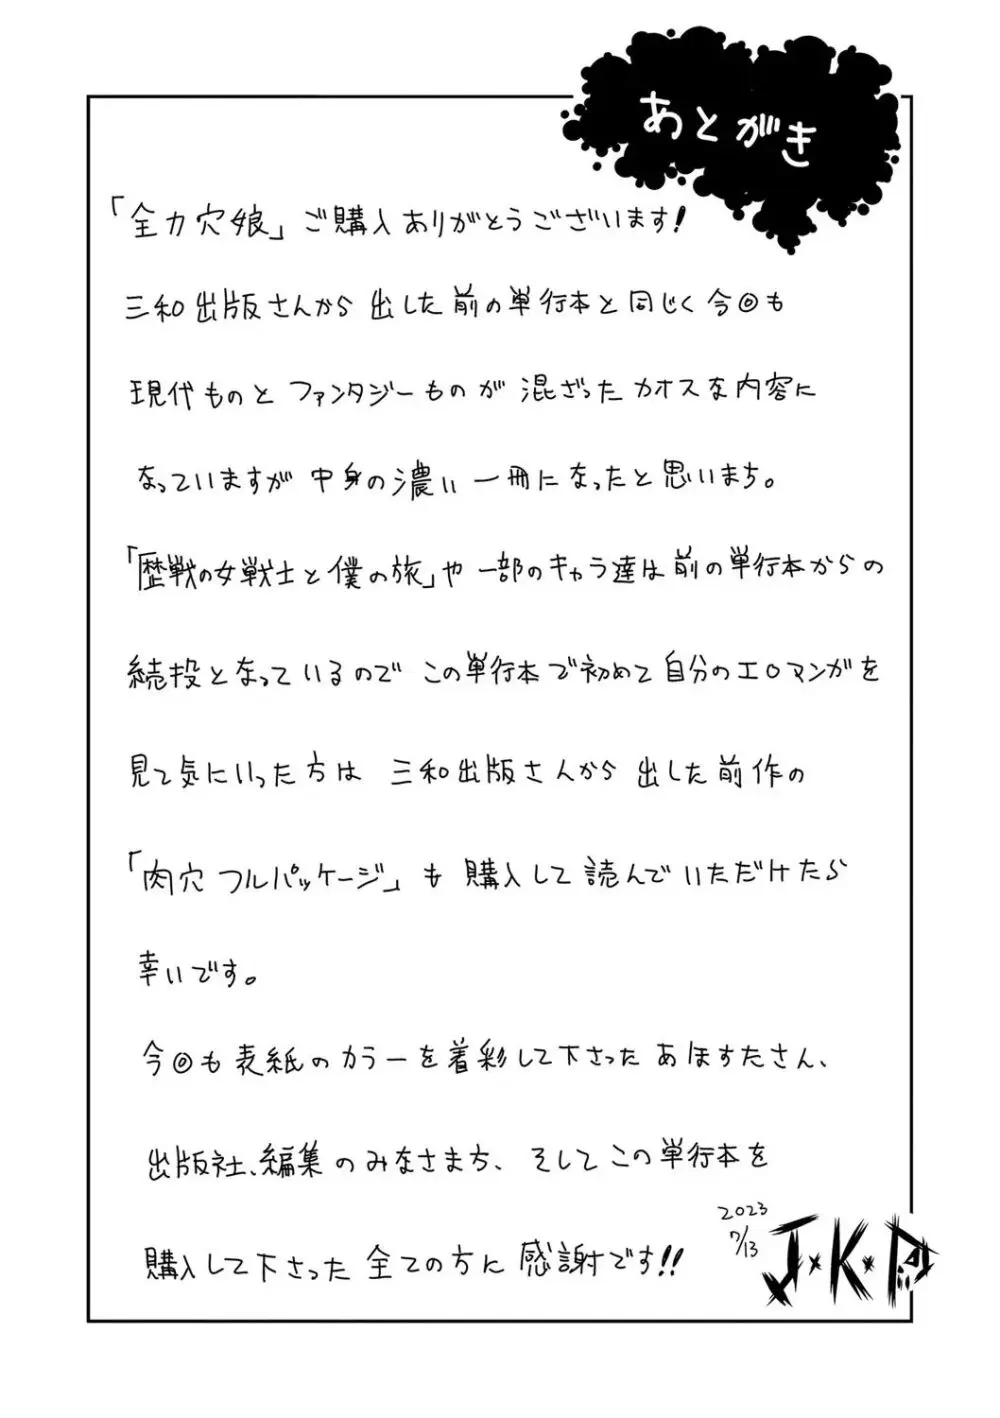 あとがき
「全力穴娘」ご購入ありがとうございます!
三和出版さんから出した前の単行本と同じく今回も
現代ものとファンタジーものが混ざったカオスな内容に
なっていますが中身の濃い一冊になったと思いまち。
「歴戦の女戦士と僕の旅」や一部のキャラ達は前の単行本からの
続投となっているのでこの単行本で初めて自分のエロマンガを
見て気にいった方は 三和出版さんから出した前作の
「肉穴フルパッケージ」も購入して読んでいただけたら
幸いです。
今回も表紙のカラーを着彩して下さったあほすたさん、
出版社、編集のみなさまち、そしてこの単行本を
購入して下さった全ての方に感謝です!!
2023
7/13
J・K・P